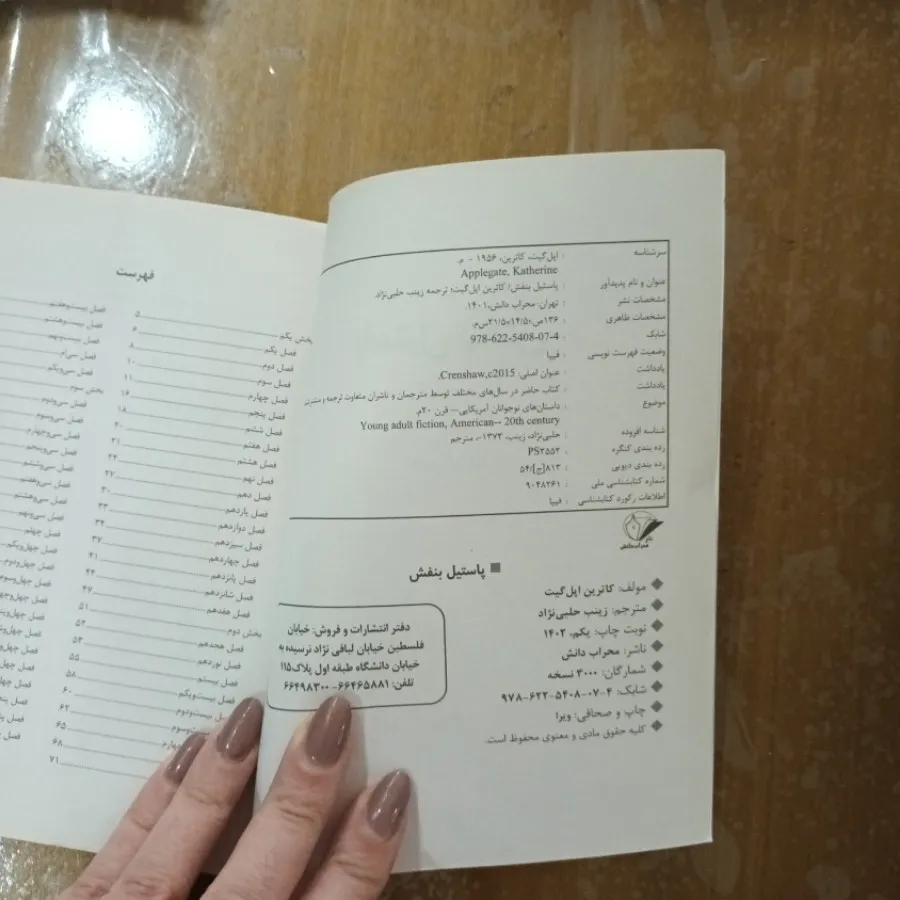 سرشناسه : اپل‌گیت، کاترین، ۱۹۵۶ - م.
Applegate, Katherine
عنوان و نام پدیدآور : پاستیل بنفش/ کاترین اپل‌گیت؛ ترجمه زینب حلبی‌نژاد.
مشخصات نشر : تهران: محراب دانش، ۱۴۰۱.
مشخصات ظاهری : ۱۳۶ص.؛ ۱۴/۵×۲۱/۵س‌م.
شابک : 978-622-5408-07-4
وضعیت فهرست نویسی : فیپا
یادداشت : عنوان اصلی: Crenshaw,c2015.
یادداشت : کتاب حاضر در سال‌های مختلف توسط مترجمان و ناشران متفاوت ترجمه و
موضوع : داستان‌های نوجوانان آمریکایی-- قرن ۲۰م.
Young adult fiction, American-- 20th century
شناسه افزوده : حلبی‌نژاد، زینب، ۱۳۷۳-، مترجم
رده بندی کنگره : PS۳۵۵۲
رده بندی دیویی : ۸۱۳[ج]/۵۴
شماره کتابشناسی ملی : ۹۰۴۸۲۶۱
اطلاعات رکورد کتابشناسی : فیپا
نشر
محراب دانش
پاستیل بنفش
مولف: کاترین اپل‌گیت
مترجم: زینب حلبی‌نژاد
نوبت چاپ: یکم، ۱۴۰۲
ناشر: محراب دانش
شمارگان: ۳۰۰۰ نسخه
شابک: ۹۷۸-۶۲۲-۵۴۰۸-۰۷-۴
چاپ و صحافی: ویرا
کلیه حقوق مادی و معنوی محفوظ است.
دفتر انتشارات و فروش: خیابان
فلسطین خیابان لبافی نژاد نرسیده به
خیابان دانشگاه طبقه اول پلاک۱۱۵
تلفن: ۶۶۴۶۵۸۸۱- ۶۶۴۹۸۳۰۰
فهرست
بخش یکم ۵
فصل یکم ۶
فصل دوم ۸
فصل سوم ۱۰
فصل چهارم ۱۱
فصل پنجم ۱۶
فصل ششم ۱۸
فصل هفتم ۲۰
فصل هشتم ۲۱
فصل نهم ۲۴
فصل دهم ۲۷
فصل یازدهم ۳۰
فصل دوازدهم ۳۳
فصل سیزدهم ۳۴
فصل چهاردهم ۳۷
فصل پانزدهم ۴۱
فصل شانزدهم ۴۴
فصل هفدهم ۴۷
بخش دوم ۵۱
فصل هجدهم ۵۲
فصل نوزدهم ۵۳
فصل بیستم ۵۵
فصل بیست‌ویکم ۵۸
بیست‌ودوم ۶۰
۶۲
۶۵
۶۸
۷۱
فصل بیست‌وهفتم
فصل بیست‌وهشتم
فصل بیست‌ونهم
فصل سی‌ام
فصل سی‌ویکم
بخش سوم
فصل سی‌ودوم
فصل سی‌وسوم
فصل سی‌وچهارم
فصل سی‌وپنجم
فصل سی‌وششم
فصل سی‌وهفتم
فصل سی‌وهشتم
فصل سی‌ونهم
فصل چهلم
فصل چهل‌ویکم
فصل چهل‌ودوم
فصل چهل‌وسوم